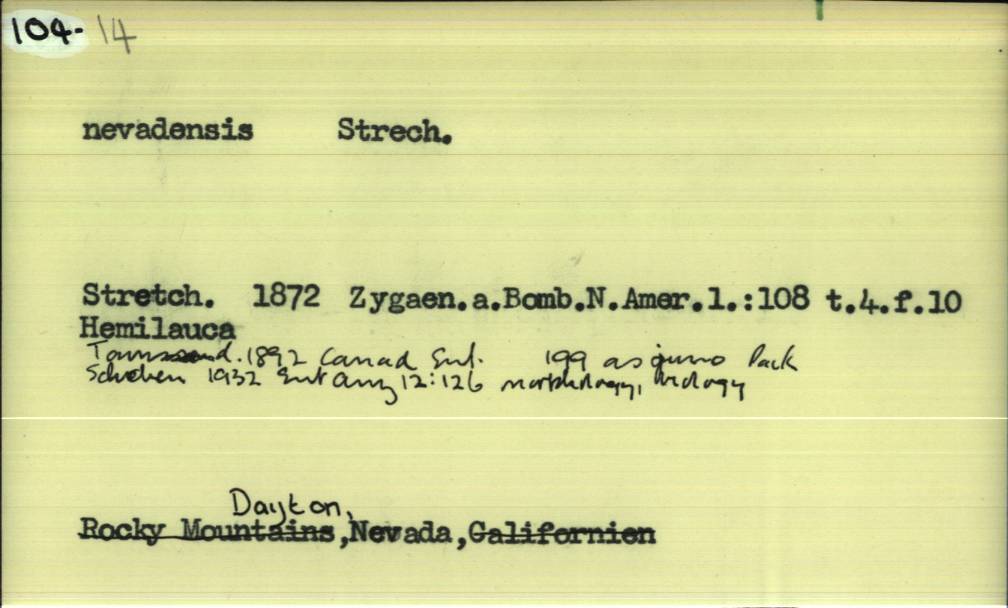 104-14
nevadensis Strech.
Stretch. 1872 Zygaen.a.Bomb.N.Amer.1.:108 t.4.f.10
Hemilauca
Townsend. 1892 Canad Ent. 199 as juno Pack
1932 Ent 12:126 morphology, biology
Dayton,
Rocky Mountains,Nevada,Californien